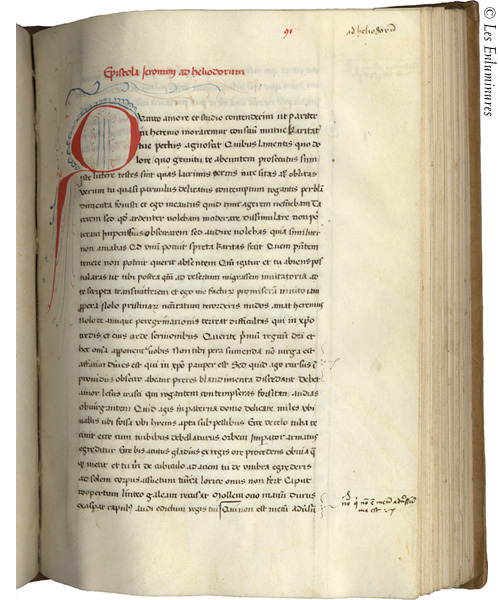 91
ad heliodorū
Epistola Jeronimi ad heliodorum
Quanto amore et studio contenderim ut pariter
in heremo moraremur consciū mutue karitatis
pectus agnoscit Quibus lamentis quo do
lore quo gemitu te abeuntem prosecutus sim
iste littere testes sunt quas lacrimis
verum tu quasi parvulus delicatus contemptum rogantis per blā
dimenta fovisti et ego incautus quid tunc agerem nesciebam Ta
cerem sed qd ardenter volebam moderate dissimulare non po
teram Impensius obsecrarem sed audire nolebas quia similiter
non amabas Qd unū potuit spreta karitas fecit Quem pntem
tenere non potuit querit absentem Qm igitur et tu abiens pos
tularas ut tibi postea qm ad desertum migrassem invitatoria ad
te scripta transmitterem et ego me facturū promiserā invito iam
ppera Nolo pristinarū necessitatum recorderis nudos amat heremus
Nolo te antique peregrinationis terreat difficultas qui in xpo
credis et eius crede sermonibus Querite primū regnū dei et
hec omīa apponentur vobis Non tibi pera sumenda nō virga est
affatim dives est qui in xpo pauper est Sed quid ago rursus im
providus obsecro abeant preces blandimenta discedant Debet
amor lesus irasci qui rogantem contempseras forsitan audias
obiurgantem Quid agis in paterna domo delicate miles ubi
vallus ubi fossa ubi hyems acta sub pellibus Ecce de celo tuba ca
nit ecce cum nubibus debellaturus orbem Imperator armatus
egreditur Ecce bis acutus gladius ex regis ore procedens obvia q
metit et tu m de cubiculo ad aciem tu de umbra egrederis
ad solem corpus assuetum tunica lorice onus non fert Caput
coopertum linteo galeam recusat Mollem ocio manū durus
exasperat capulus audi edictum regis tui Qui non est mecū adversū
me est
© Les Enluminures